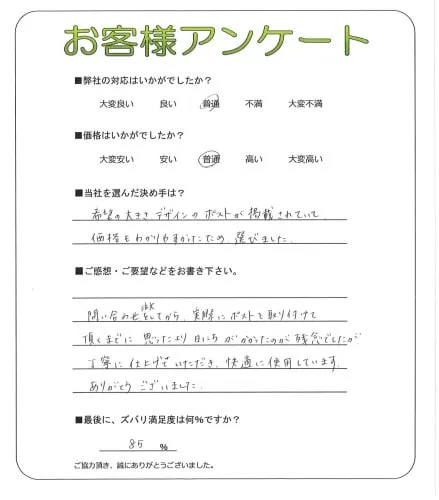 お客様アンケート
■弊社の対応はいかがでしたか？
大変良い 良い 普通 不満 大変不満
■価格はいかがでしたか？
大変安い 安い 普通 高い 大変高い
■当社を選んだ決め手は？
希望の大きさ デザインの ポストが 掲載されていて、
価格もわかりやすかったため、選びました。
■ご感想・ご要望などをお書き下さい。
問い合わせをしてから、実際にポストを取り付けて
頂くまでに 思ったより 日にち がかかったのが 残念でしたが
丁寧に 仕上げていただき、快適に使用しています。
ありがとう ございました。
■最後に、ズバリ満足度は何%ですか？
85 %
ご協力頂き、誠にありがとうございました。